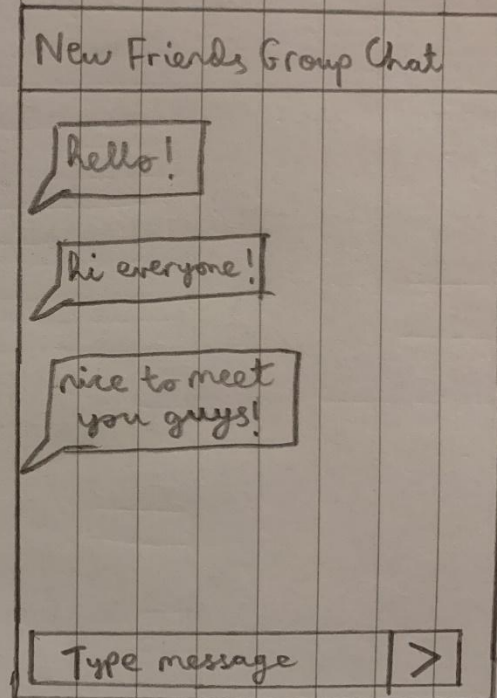 New Friends Group Chat
hello!
hi everyone!
nice to meet
you guys!
Type message >